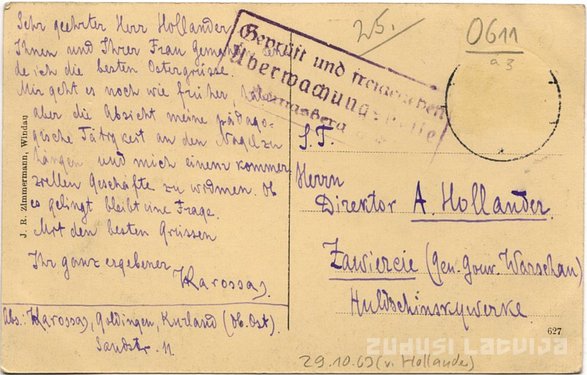 Sehr geehrter Herr Hollander
Ihnen und Ihrer Frau Gemahlin
de ich die besten Ostergrüsse.
Mir geht es noch wie früher, habe
aber die Absicht meine pädago-
gische Tätigkeit an den Nagel zu
hängen und mich einem kommer-
ziellen Geschäfte zu widmen. Ob
es gelingt bleibt eine Frage.
Mit den besten Grüssen
Ihr ganz ergebener
Karossas.
Abs: Karossas, Goldingen, Kurland (Ob. Ost).
Sandstr. 11
J. R. Zimmermann, Windau
Geprüft und freizugeben
Überwachungsstelle
25.
0611
a3
S. T.
Herrn
Direktor A. Hollander.
Zawiercie (Gen. Gouv. Warschau)
Huldschinskywerke
627
ZUDUSI LATVIJA
29.10.69 (v. Hollander)